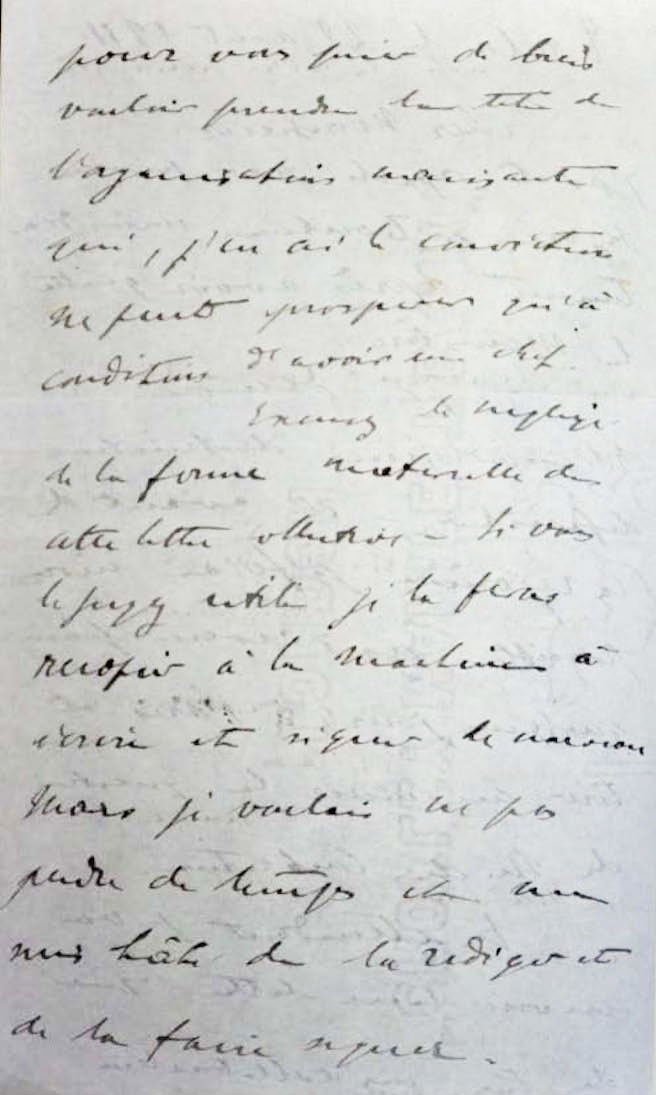 pour vous prier de bien
vouloir prendre la tête de
l'organisation naissante
qui, j'en ai la conviction
ne peut prospérer qu'à
condition d'avoir un chef.
Excusez le négligé
de la forme matérielle de
cette lettre collective – Si vous
le jugez utile je la ferai
recopier à la machine à
écrire et signer de nouveau
Mais je voulais ne pas
perdre de temps et me
suis hâté de la rédiger et
de la faire signer.